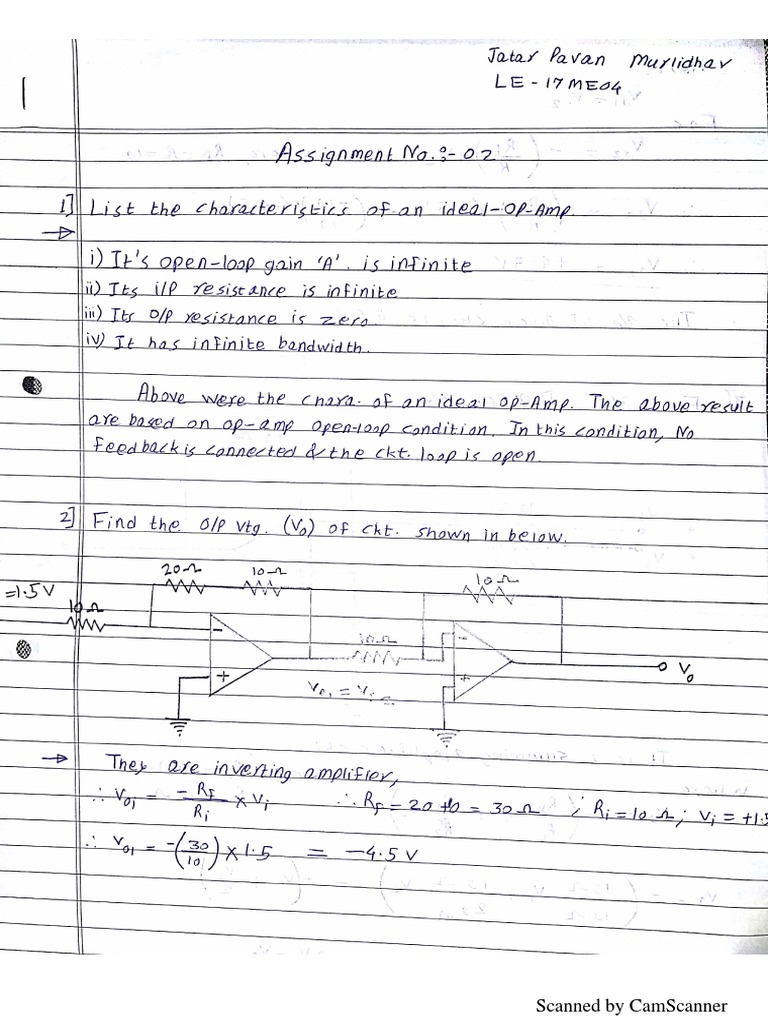 Jatar Pavan Murlidhar
LE-17ME04
Assignment No.:- 02
1] List the characteristics of an ideal-OP-Amp.
i) It's open-loop gain 'A'. is infinite
ii) Its i/p resistance is infinite
iii) Its o/p resistance is zero.
iv) It has infinite bandwidth.
Above were the chara. of an ideal op-Amp. The above result
are based on op-amp open-loop condition. In this condition, No
feedback is connected & the ckt. loop is open.
2] Find the o/p vtg. (V₀) of ckt. shown in below.
20Ω 10Ω 10Ω
=1.5V
10Ω
- -
10Ω
+ + V₀
V₀₁ = Vi₂
→ They are inverting amplifier,
∴ V₀₁ = -Rf/Ri × Vi ∴ Rf = 20+10 = 30Ω ; Ri = 10Ω; Vi = +1.5
∴ V₀₁ = -(30/10) × 1.5 = -4.5 V
Scanned by CamScanner